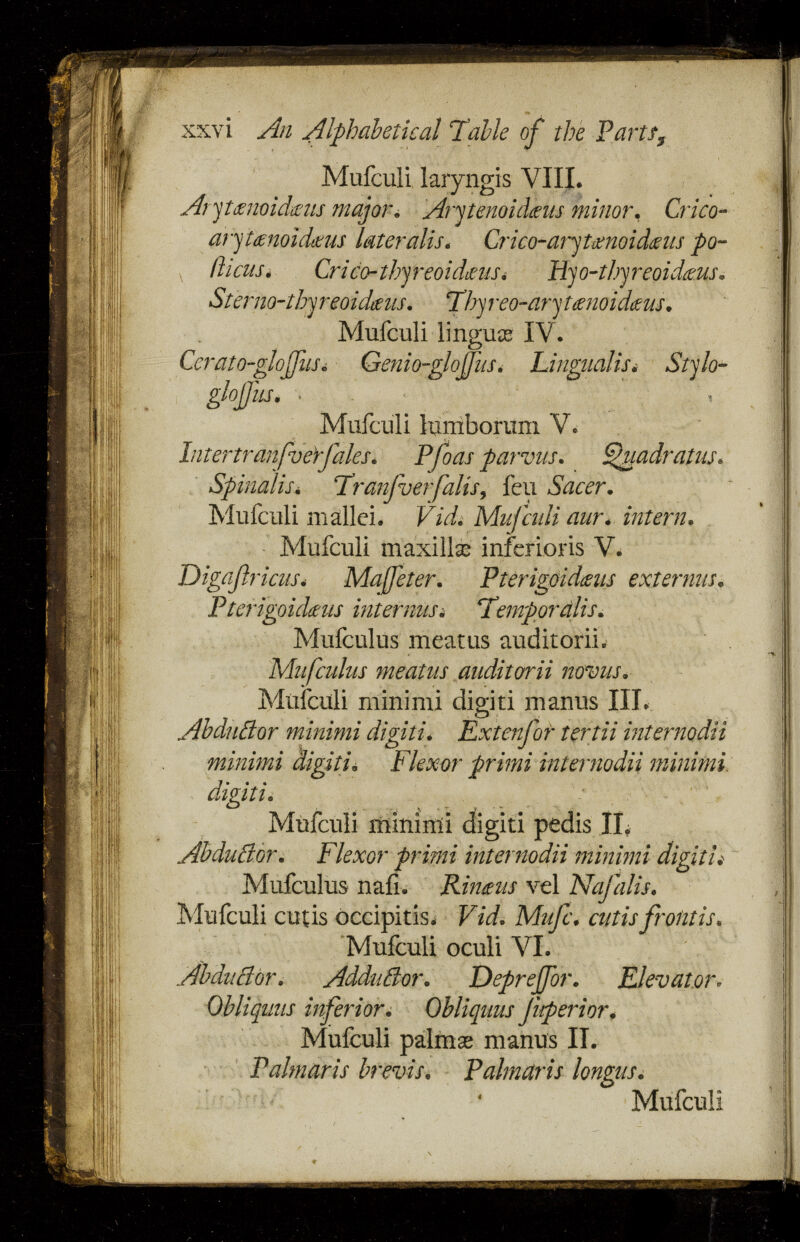 xxvi An Alphabetical Table of the Parts,
Muſculi laryngis VIII.
Arytænoidæus major. Arytenoidæus minor. Crico-
arytænoidæus lateralis. Crico-arytænoidæus po-
ſticus. Crico-thyreoidæus. Hyo-thyreoidæus.
Sterno-thyreoidæus. Thyreo-arytænoidæus.
Muſculi linguæ IV.
Cerato-gloſſus. Genio-gloſſus. Lingualis. Stylo-
gloſſus.
Muſculi lumborum V.
Intertranſverſales. Pſoas parvus. Quadratus.
Spinalis. Tranſverſalis, ſeu Sacer.
Muſculi mallei. Vid. Muſculi aur. intern.
Muſculi maxillæ inferioris V.
Digaſtricus. Maſſeter. Pterigoidæus externus.
Pterigoidæus internus. Temporalis.
Muſculus meatus auditorii.
Muſculus meatus auditorii novus.
Muſculi minimi digiti manus III.
Abductor minimi digiti. Extenſor tertii internodii
minimi digiti. Flexor primi internodii minimi
digiti.
Muſculi minimi digiti pedis II.
Abductor. Flexor primi internodii minimi digiti.
Muſculus naſi. Rinæus vel Naſalis.
Muſculi cutis occipitis. Vid. Muſc. cutis frontis.
Muſculi oculi VI.
Abductor. Adductor. Depreſſor. Elevator.
Obliquus inferior. Obliquus ſuperior.
Muſculi palmæ manus II.
Palmaris brevis. Palmaris longus.
Muſculi